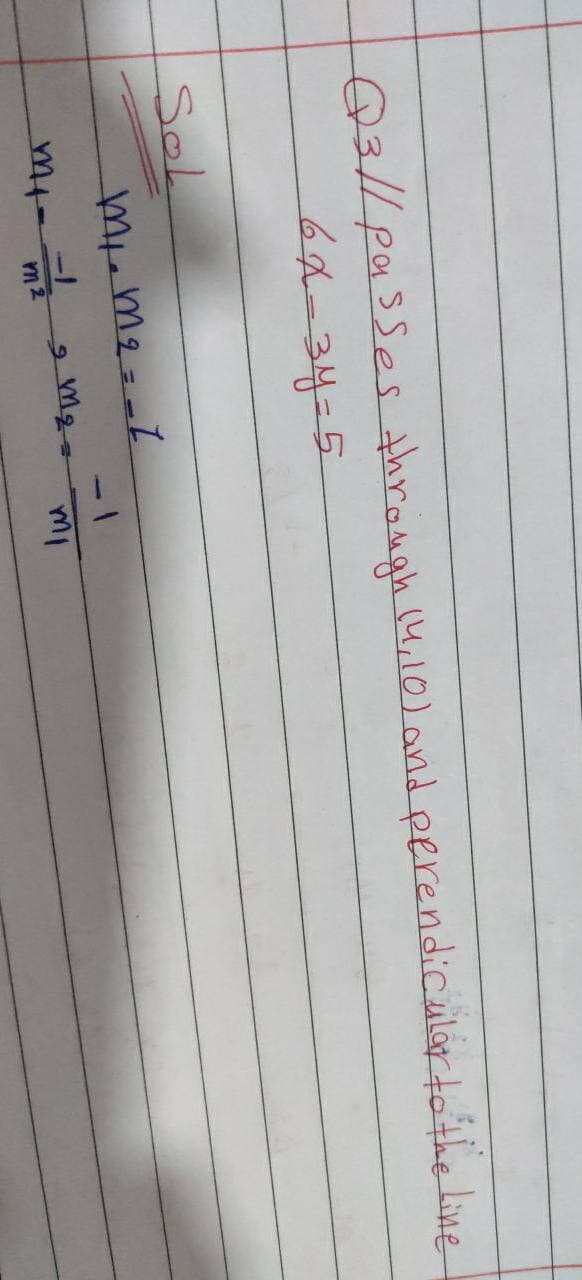 Q3// passes through (4,10) and perendicular to the line
6x - 3y = 5
Sol
m1 . m2 = -1
m1 - -1/m2 , m2 = -1/m1